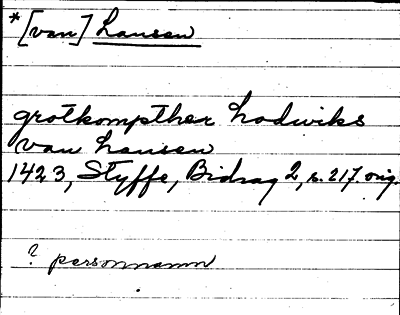 *[van] Lansen
grotkompther Lodwiks
van Lansen
1423, Styffe, Bidrag 2, s. 217. orig.
? personnamn